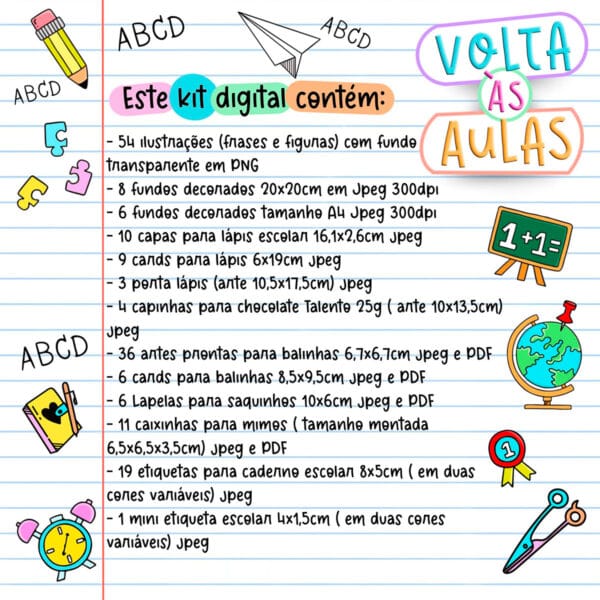 ABCD
ABCD
ABCD
VOLTA
ÀS
AULAS
Este kit digital contém:
- 54 ilustrações (frases e figuras) com fundo
transparente em PNG
- 8 fundos decorados 20x20cm em Jpeg 300dpi
- 6 fundos decorados tamanho A4 Jpeg 300dpi
- 10 capas para lápis escolar 16,1x2,6cm jpeg
- 9 cards para lápis 6x19cm jpeg
- 3 porta lápis (arte 10,5x17,5cm) jpeg
- 4 capinhas para chocolate Talento 25g ( arte 10x13,5cm)
jpeg
- 36 artes prontas para balinhas 6,7x6,7cm Jpeg e PDF
- 6 cards para balinhas 8,5x9,5cm Jpeg e PDF
- 6 Lapelas para saquinhos 10x6cm jpeg e PDF
- 11 caixinhas para mimos ( tamanho montada
6,5x6,5x3,5cm) Jpeg e PDF
- 19 etiquetas para caderno escolar 8x5cm ( em duas
cores variáveis) jpeg
- 1 mini etiqueta escolar 4x1,5cm ( em duas cores
variáveis) jpeg
1+1=
ABCD
1